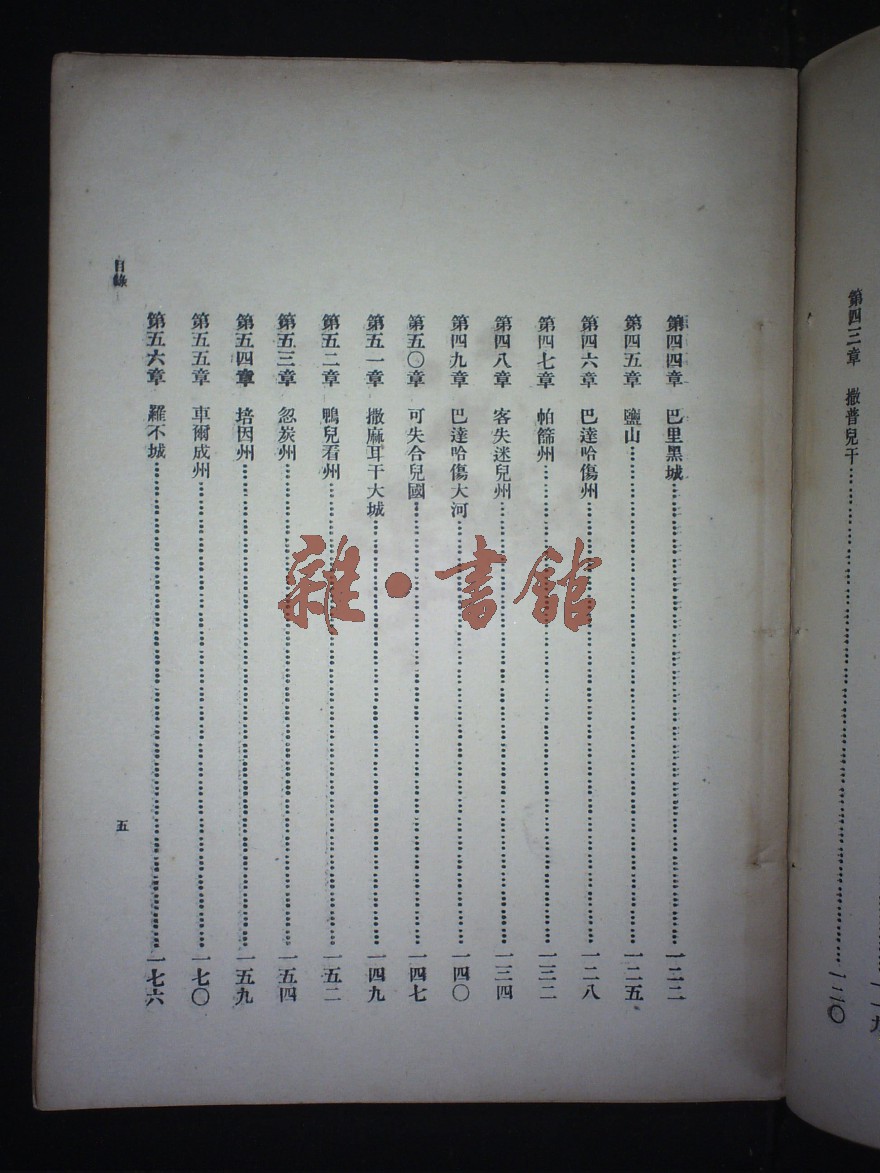 一一九
第四三章 撒普兒干……一二〇
第四四章 巴里黑城……一二二
第四五章 鹽山……一二五
第四六章 巴達哈傷州……一二八
第四七章 帕篩州……一三二
第四八章 客失迷兒州……一三四
第四九章 巴達哈傷大河……一四〇
第五〇章 可失合兒國……一四七
第五一章 撒麻耳干大城……一四九
第五二章 鴨兒看州……一五二
第五三章 忽炭州……一五四
第五四章 培因州……一五九
第五五章 車爾成州……一七〇
第五六章 羅不城……一七六
目錄
五
雜·書館